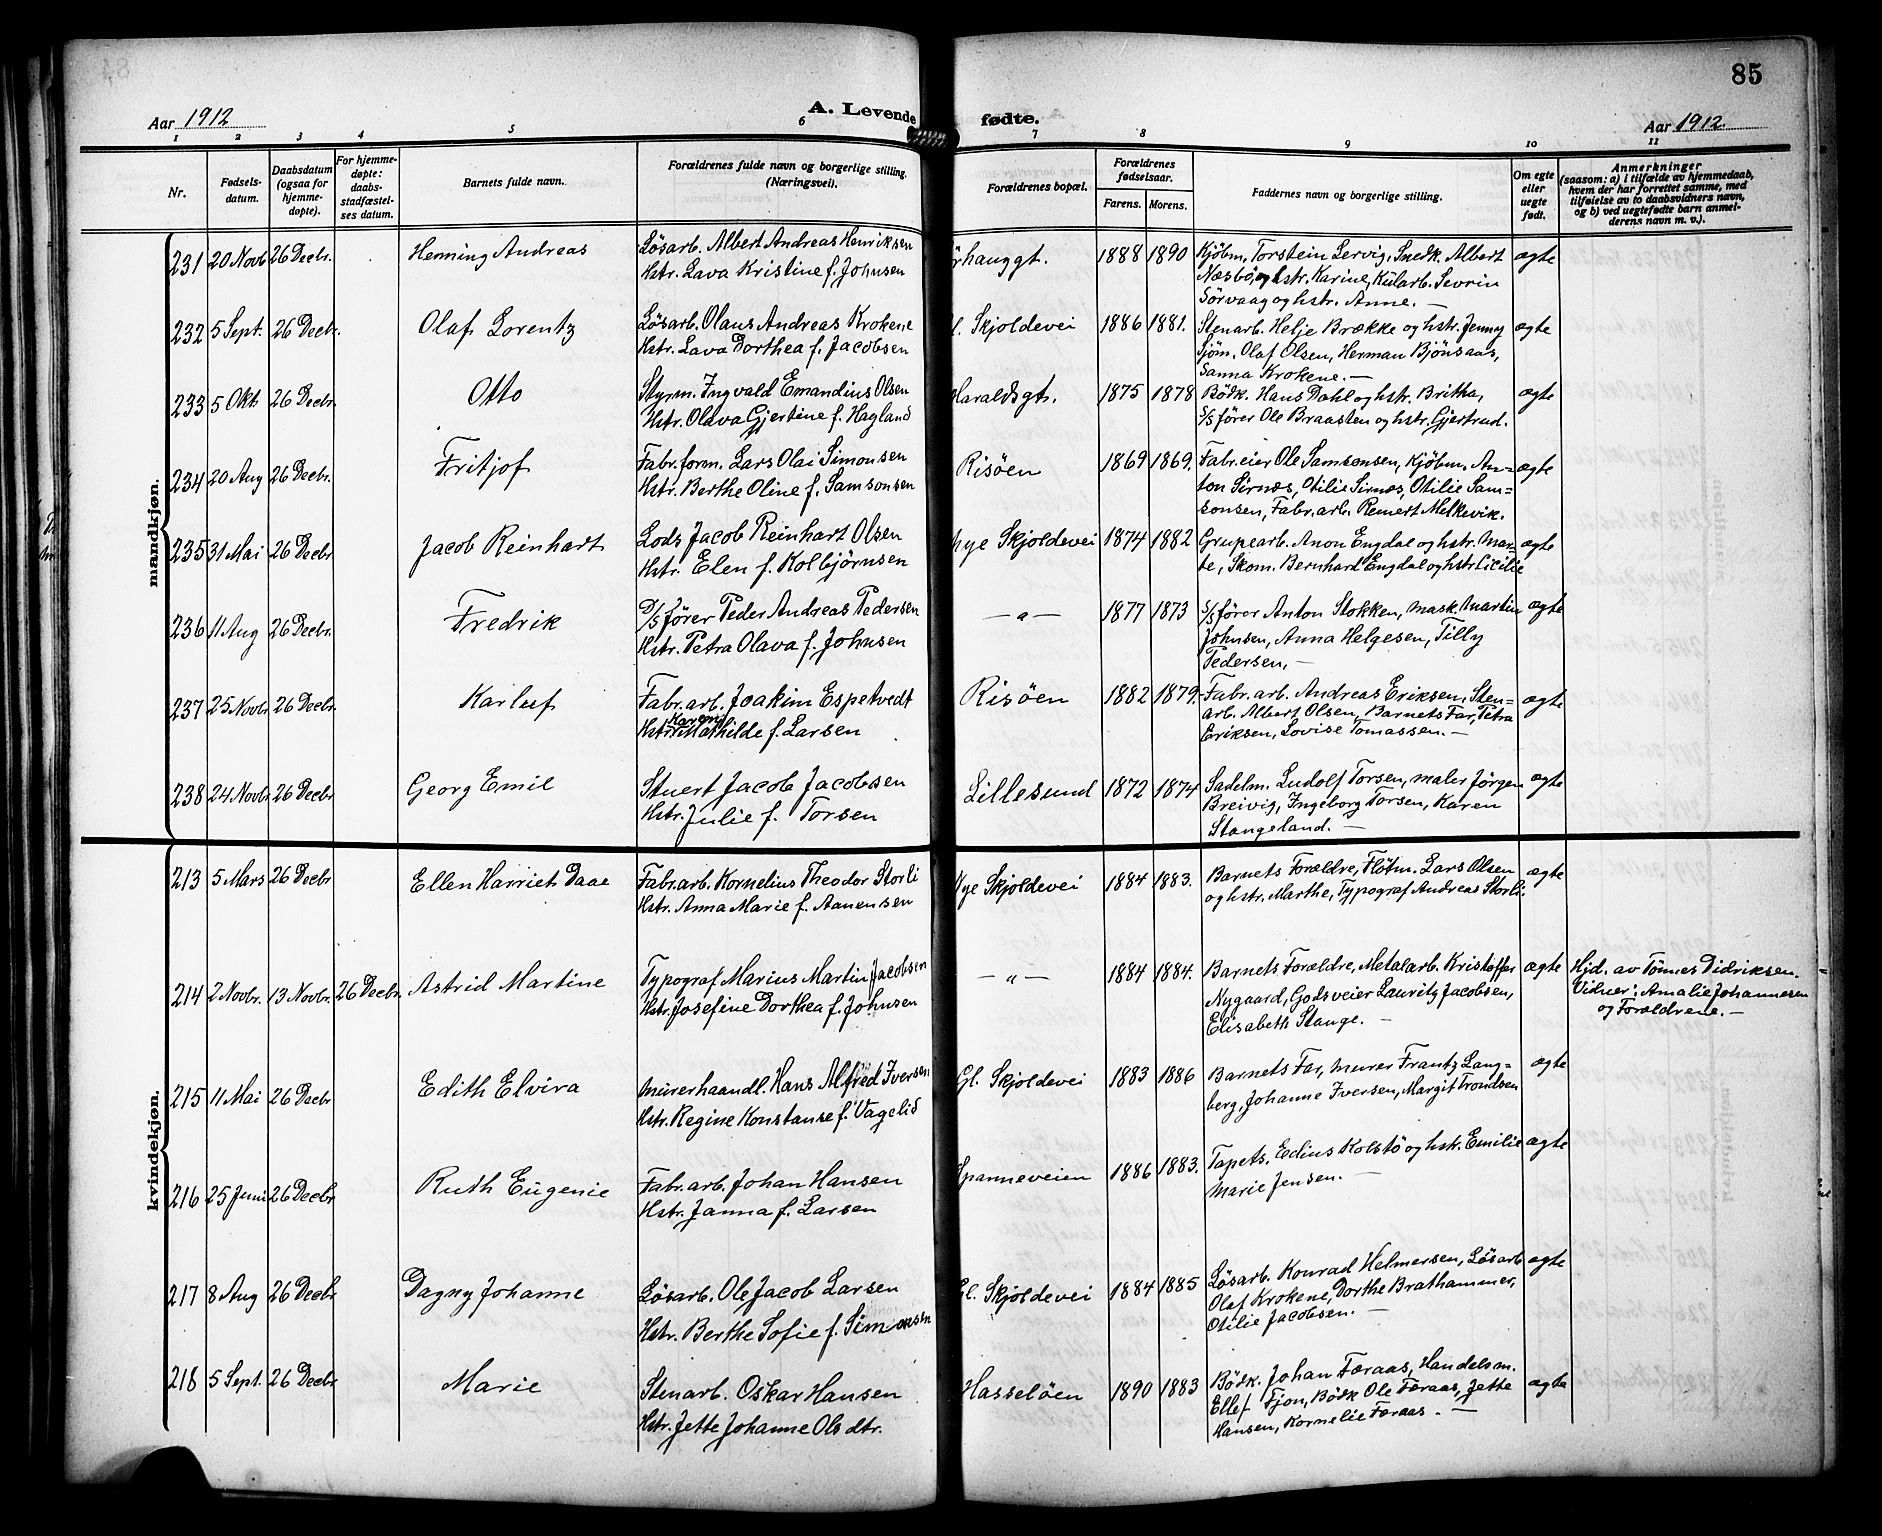 85
Aar 1912
A. Levende
fødte.
Aar 1912.
1 2 3 4 5 6 7 8 9 10 11
Nr.
Fødsels-
datum.
Daabsdatum
(ogsaa for
hjemme-
døpte).
For hjemme-
døpte:
daabs-
stadfæstel-
ses datum.
Barnets fulde navn.
Forældrenes fulde navn og borgerlige stilling.
(Næringsvei).
Forældrenes bopæl.
Forældrenes
fødselsaar.
Farens. Morens.
Faddernes navn og borgerlige stilling.
Om egte
eller
uegte
født.
Anmerkninger
(saasom: a) i tilfælde av hjemmedaab,
hvem der har forrettet samme, med
tilføielse av to daabsvidners navn,
og b) ved uegtefødte barn anmel-
derens navn m. v.).
mandkjøn.
231 20 Novb 26 Decbr. Henning Andreas Løsarb. Albert Andreas Henriksen ørhauggt. 1888 1890 Kjøbm. Torstein Lervig, Snedk. Albert ægte
Hstr. Lava Kristine f. Johnsen Næsbö, og hstr. Karine, Kularb. Sevrin
Sörvaag og hstr. Anne. —
232 5 Sept. 26 Decbr. Olaf Lorentz Løsarb. Olaus Andreas Krokene l. Skjoldevei 1886 1881. Stenarb. Helje Brække og hstr. Jenny ægte
Hstr. Lava Dorthea f. Jacobsen Sjöm. Olaf Olsen, Herman Bjönsaas,
Sanna Krokene. —
233 5 Okt. 26 Decbr. Otto Styrm. Ingvald Emandius Olsen Haraldsgt. 1875 1878 Bödk. Hans Dahl og hstr. Britha, ægte
Hstr. Olava Gjertine f. Hagland S/S fører Ole Braasten og hstr. Gjertrud.
234 20 Aug 26 Decbr. Fritjof Fabr. form. Lars Olai Simonsen Risöen 1869 1869. Fabr. eier Ole Samsonsen, Kjöbm. An= ægte
Hstr. Berthe Oline f. Samsonsen ton Sirnæs, Otilie Sirnæs, Otilie Sam=
sonsen, Fabr. arb. Remert Melkevik.
235 31 Mai 26 Decbr Jacob Reinhart Lods Jacob Reinhart Olsen Nye Skjoldevei 1874 1882 Grupearb. Anon Engdal og hstr. Mar= ægte
Hstr. Elen f. Kolbjørnsen te, Skom. Bernhard Engdal og hstr. Cicilie
236 11 Aug 26 Decbr. Fredrik D/S fører Peder Andreas Pedersen —„— 1877 1873 S/S fører Anton Stokken, mask. Martin ægte
Hstr. Petra Olava f. Johnsen Johnsen, Anna Helgesen, Tilly
Pedersen, —
237 25 Novbr 26 Decbr. Karluf Fabr. arb. Joakim Espetvedt Risöen 1882 1879. Fabr. arb. Andreas Eriksen, Sten= ægte
Karen
Hstr. Mathilde f. Larsen arb. Albert Olsen, Barnets Far, Petra
Eriksen, Lovise Tomassen. —
238 24 Novbr 26 Decbr Georg Emil Stuert Jacob Jacobsen Lillesund 1872 1874 Sadelm. Ludolf Torsen, maler Jörgen ægte
Hstr. Julie f. Torsen Breivig, Ingeborg Torsen, Karen
Stangeland. —
kvindekjøn.
213 5 Mars 26 Decbr Ellen Harriet Daae Fabr. arb. Kornelius Theodor Storli Nye Skjoldevei 1884 1883. Barnets Forældre, Fløtm. Lars Olsen ægte
Hstr. Anna Marie f. Aanensen og hstr. Marthe, Typograf Andreas Storli.
214 2 Novbr. 13 Novbr. 26 Decbr. Astrid Martine Typograf Marius Martin Jacobsen —„— 1884 1884. Barnets Forældre, Metalarb. Kristoffer ægte Hjd. av Tönnes Didriksen.
Hstr. Josefine Dorthea f. Johnsen Nygaard, Godsveier Lauritz Jacobsen, Vidner: Amalie Johannesen
Elisabeth Stange. — og Forældrene. —
215 11 Mai 26 Decbr Edith Elvira Murerhaandl. Hans Alfred Iversen Gl. Skjoldevei 1883 1886 Barnets Far, Murer Frantz Lang= ægte
Hstr. Regine Konstanse f. Vagelid berg, Johanne Iversen, Margit Trondsen
216 25 Juni 26 Decbr Ruth Eugenie Fabr. arb. Johan Hansen Spanneveien 1886 1883. Tapets. Edius Kolstö og hstr. Emilie ægte
Hstr. Janna f. Larsen Marie Jensen. —
217 8 Aug 26 Decbr Dagny Johanne Løsarb. Ole Jacob Larsen Gl. Skjoldevei 1884 1885 Løsarb. Konrad Helmersen, Løsarb ægte
Hstr. Berthe Sofie f. Simonsen Olaf Krokene, Dorthe Brathammer,
Otilie Jacobsen. —
218 5 Sept. 26 Decbr Marie Stenarb. Oskar Hansen Hasselöen 1890 1883 Bödk. Johan Færaas, Handelsm. ægte
Hstr. Jette Johanne Olsdtr. Ellef Fjon, Bödk Ole Færaas, Jette
Hansen, Kornelie Færaas. —